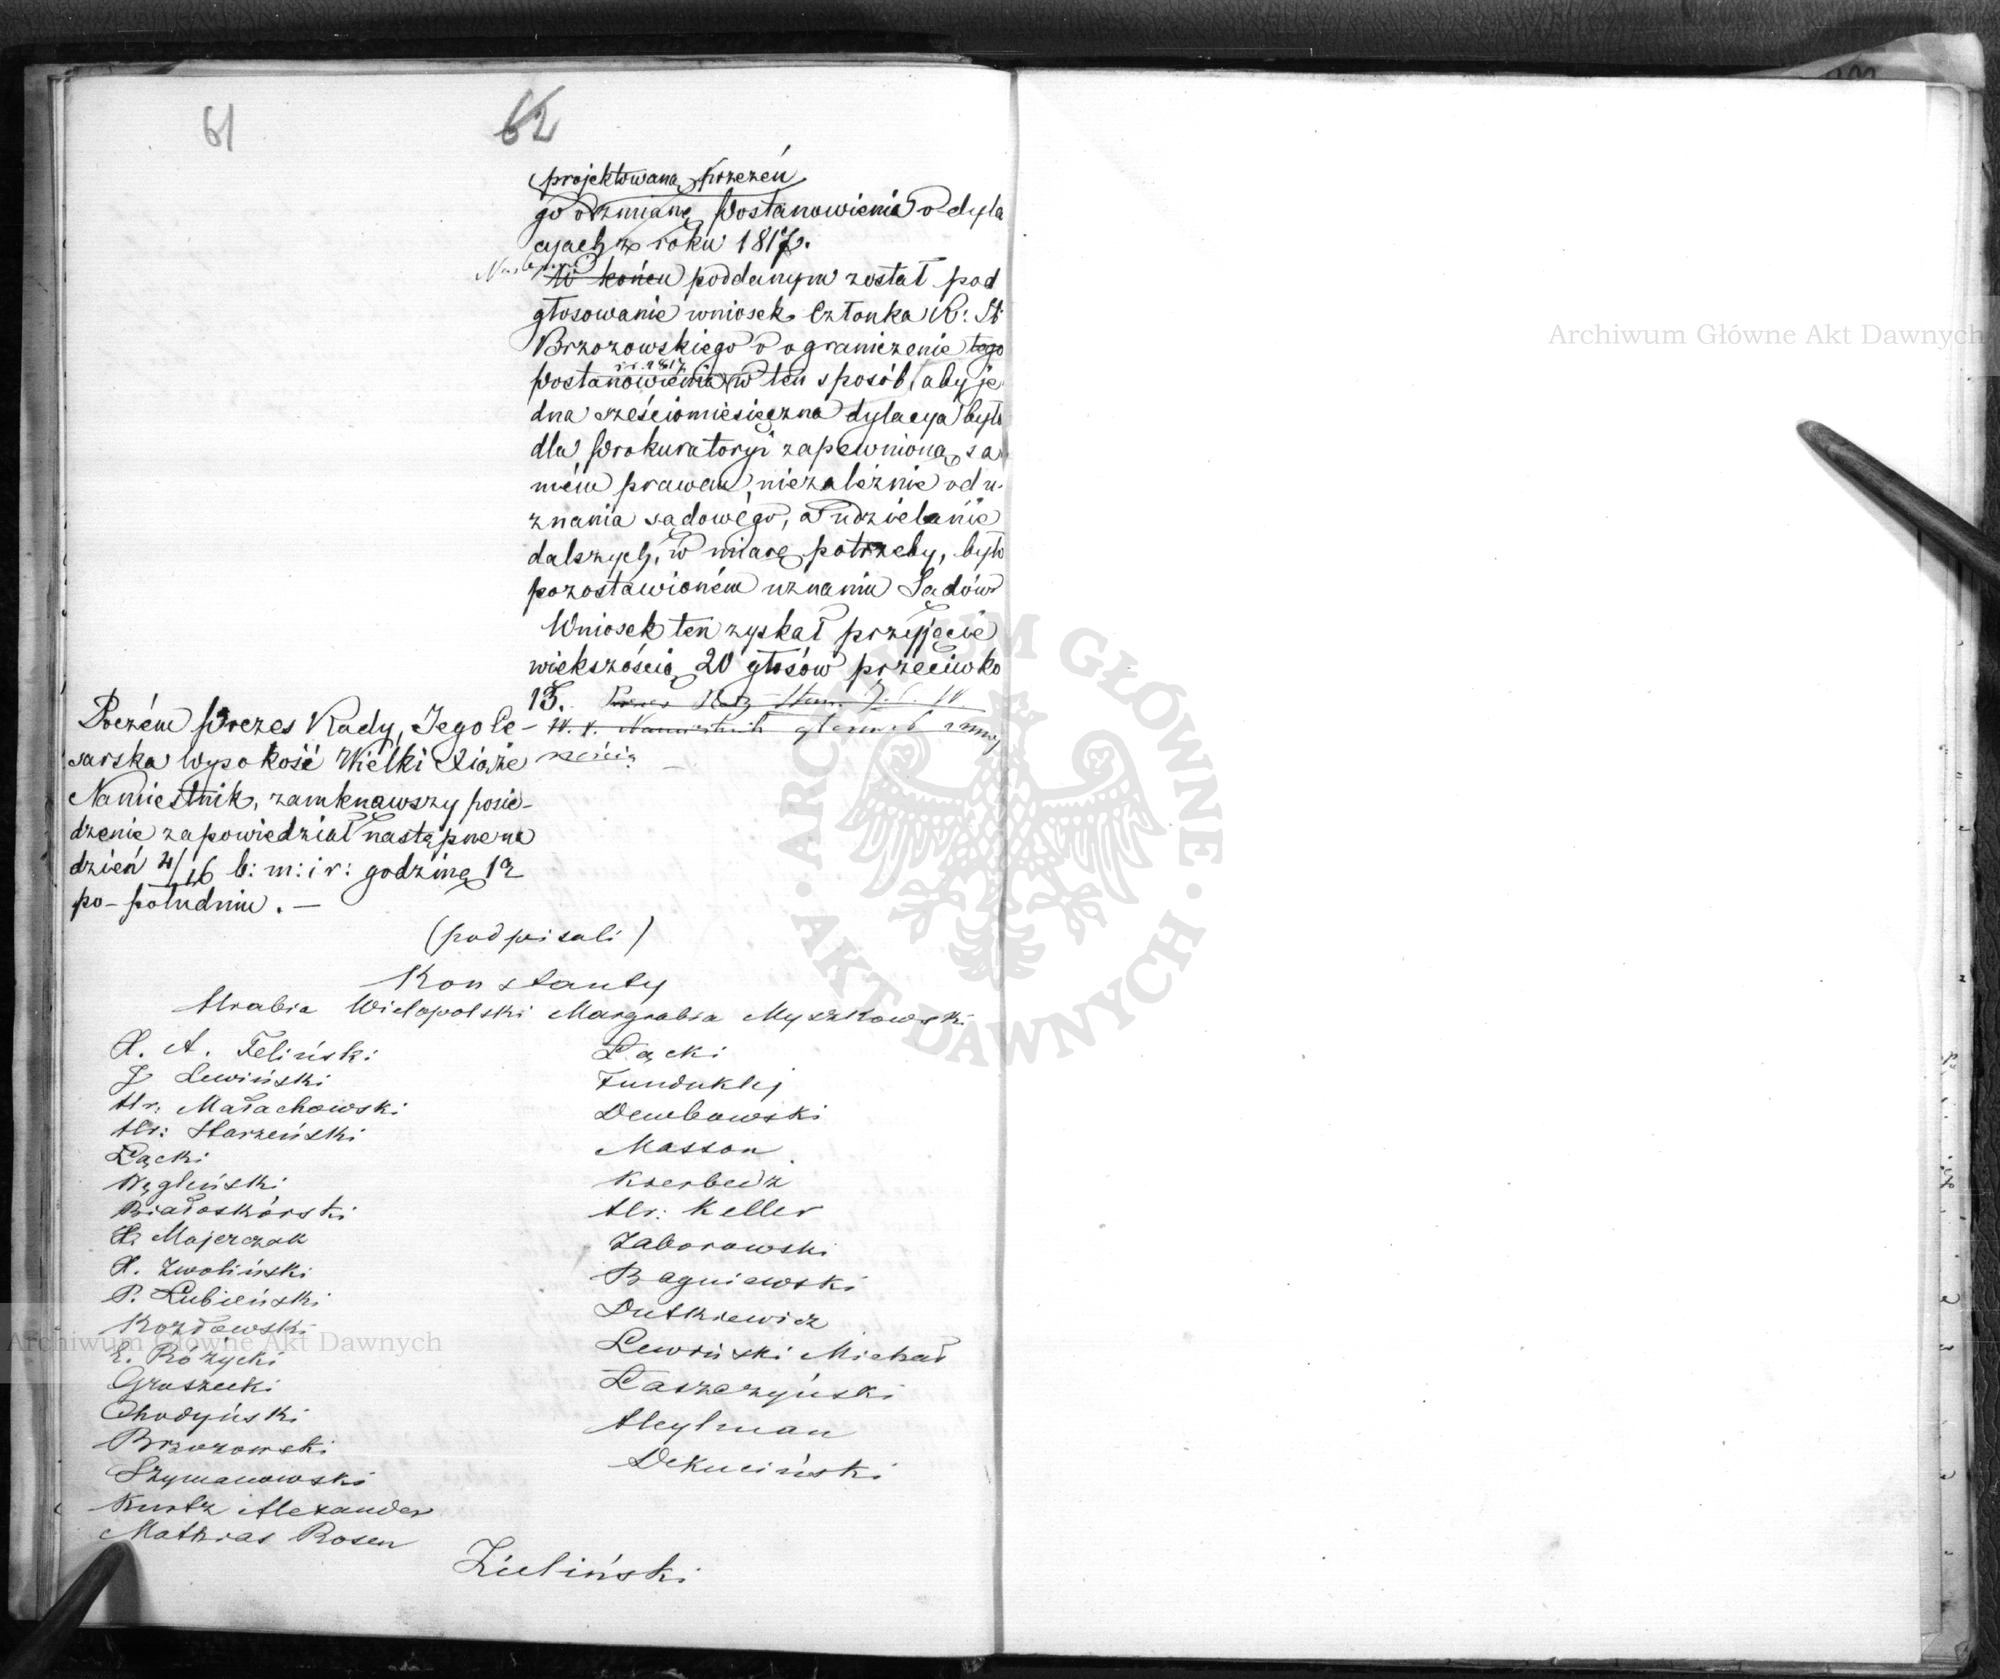 61
62
projektowaną przezeń
go o zmianę Postanowienia o dyla
cyach z roku 1817.
W końcu poddanym został pod
głosowanie wniosek Członka R: St
Brzozowskiego o ograniczenie tego
r. 1817
Postanowienia w ten sposób, aby je
dna sześciomiesięczna dylacya było
dla Prokuratoryi zapewnioną sa
mém prawem, niezależnie od u-
znania sądowego, a udzielanie
dalszych, w miarę potrzeby, było
pozostawioném uznaniu Sądów
Wniosek ten zyskał przyjęcie
większością 20 głosów przeciwko
13.
Poczém Prezes Rady, Jego Ce-
sarska Wysokość Wielki Xiąże
Namiestnik, zamknąwszy posie-
dzenie zapowiedział następne na
dzień 4/16 b: m: i r: godzinę 12
po-południu. —
(podpisali)
Konstanty
Hrabia Wielopolski Margrabia Myszkowski
X. A. Feliński
J Lewiński
Hr. Małachowski
Hr: Starzeński
Łącki
Węgleński
Białoskórski
X. Majerczak
X. Zwoliński
P. Łubieński
Kozłowski
E. Różycki
Gruszecki
Chodyński
Brzozowski
Szymanowski
Kurtz Alexander
Mathias Rosen
Łącki
Funduklej
Dembowski
Masson
Kierbedź
Hr: Keller
Zaborowski
Bagniewski
Dutkiewicz
Lewiński Michał
Łaszczyński
Heylman
Dekuciński
Zieliński
Archiwum Główne Akt Dawnych
Archiwum Główne Akt Dawnych
ARCHIWUM GŁÓWNE
AKT DAWNYCH